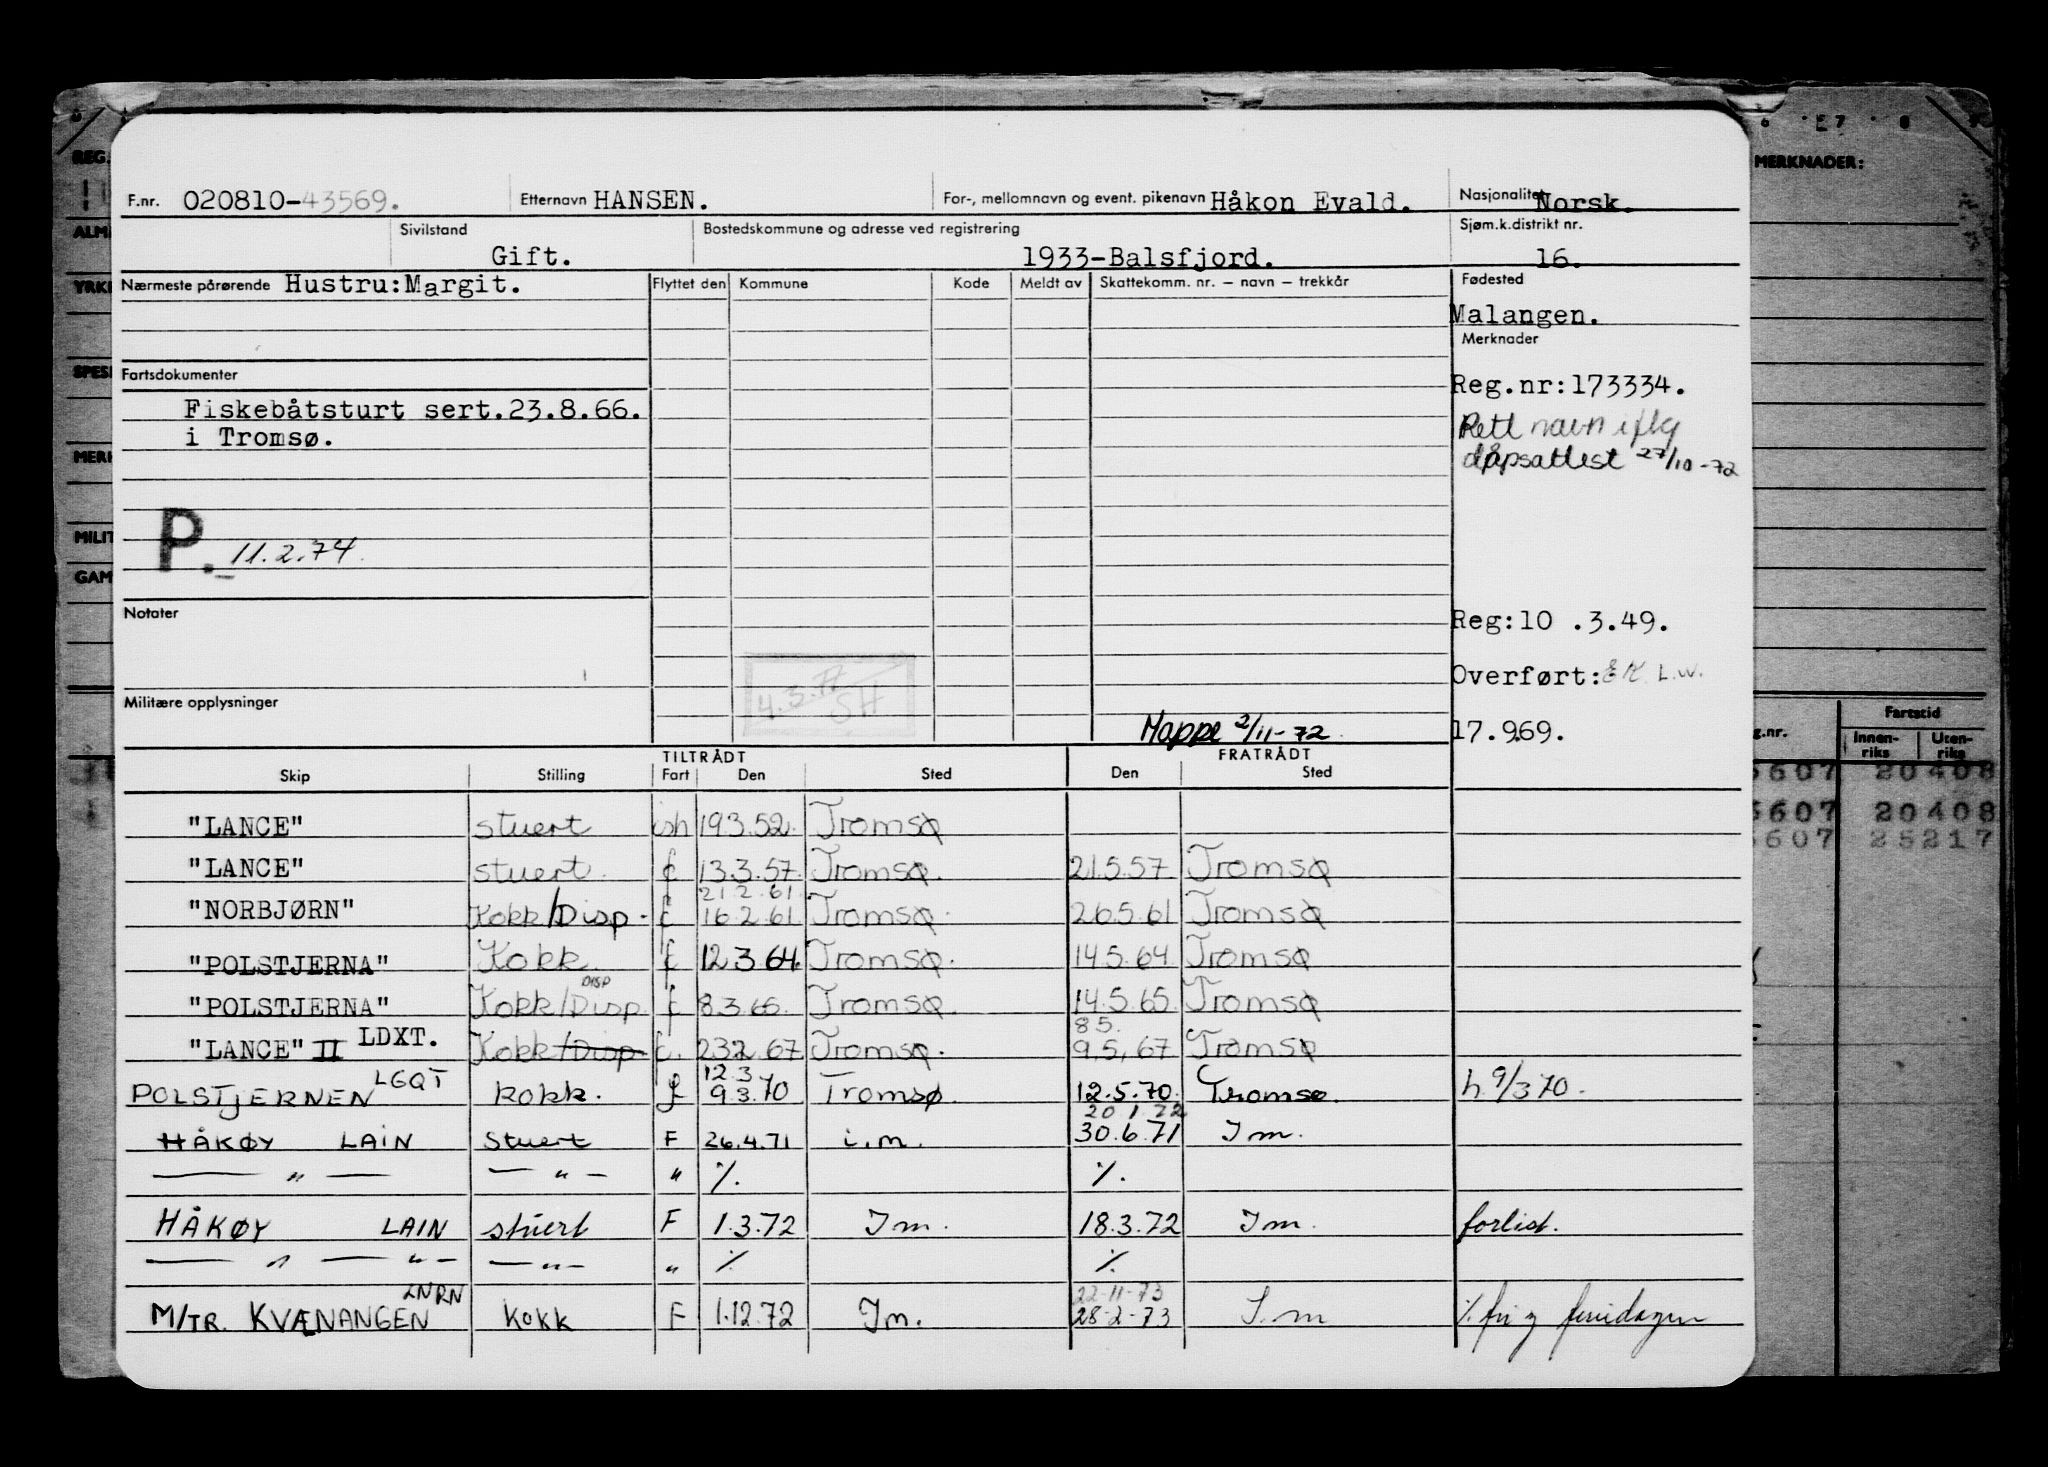 F.nr. 020810-43569. Etternavn HANSEN. For-, mellomnavn og event. pikenavn Håkon Evald. Nasjonalitet Norsk.
Sivilstand Gift. Bostedskommune og adresse ved registrering 1933-Balsfjord. Sjøm.k.distrikt nr. 16.
Nærmeste pårørende Hustru:Margit. Flyttet den Kommune Kode Meldt av Skattekomm. nr. – navn – trekkår Fødested
Malangen.
Merknader
Fartsdokumenter
Reg.nr:173334.
Fiskebåtsturt sert.23.8.66.
i Tromsø.
Rett navn iflg
dåpsattest 27/10-72
P. 11.2.74.
Notater
Reg:10 .3.49.
4.3.77
SH
Overført: L.W.
Militære opplysninger
Mappe 2/11-72
17.9.69.
TILTRÅDT FRATRÅDT
Skip Stilling Fart Den Sted Den Sted
"LANCE" stuert ish 19.3.52. Tromsø
"LANCE" stuert. f 13.3.57. Tromsø. 21.5.57 Tromsø
21.2.61.
"NORBJØRN" Kokk/Disp. f 16.2.61 Tromsø. 26.5.61 Tromsø
"POLSTJERNA" Kokk f 12.3.64. Tromsø. 14.5.64 Tromsø
DISP
"POLSTJERNA" Kokk/Disp f 8.3.65. Tromsø. 14.5.65 Tromsø
8.5.
"LANCE" II LDXT. Kokk/Disp f. 23.2.67 Tromsø. 9.5.67 Tromsø
12.3
POLSTJERNEN LGQT kokk. f 9.3.70 Tromsø. 12.5.70. Tromsø. h 9/3 70.
20 1 72
HÅKØY LAIN stuert F 26.4.71 i.m. 30.6.71 Im.
— " — — " — " %. %.
HÅKØY LAIN stuert F 1.3.72 Im. 18.3.72 Im. forlist.
— " — " — — " — " % %.
LNRN 22-11-73
M/TR. KVÆNANGEN Kokk F 1.12.72 Im. 28-2-73 I.m %. fri g feriedagen
REG.
ALM
YRK
SPES
MER
MILIT
GAM
E7 8
MERKNADER:
g.nr. Fartstid
Innen-riks Uten-riks
5607 20408
5607 20408
5607 25217